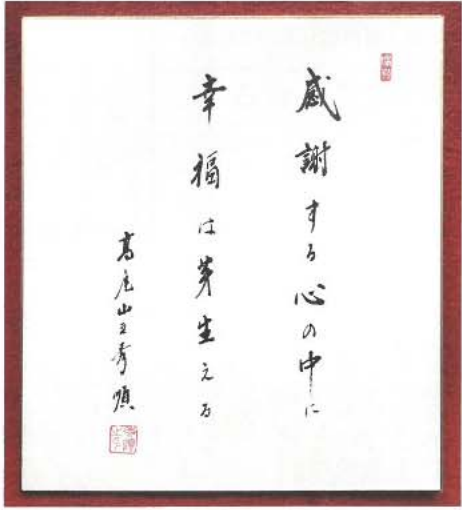 感謝する心の中に
幸福は芽生える
高尾山主秀順